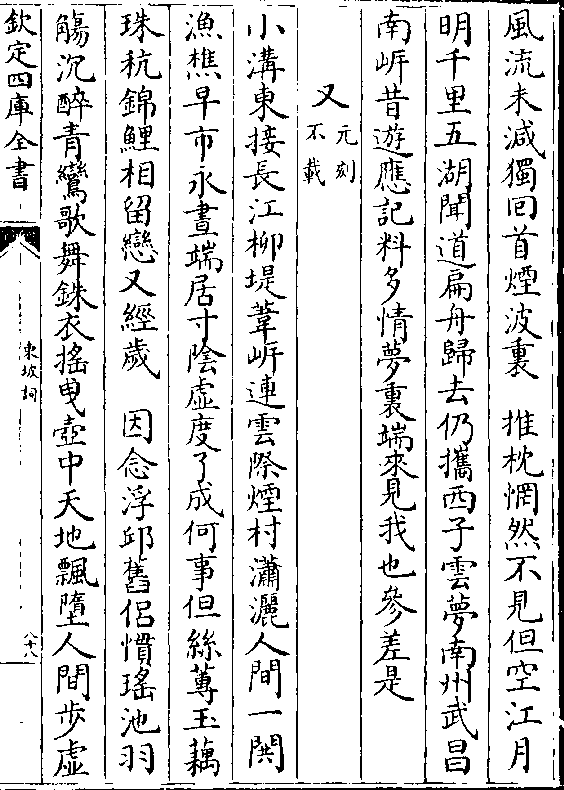 風流未減獨回首煙波裏　推枕惘然不見但空江月
明千里五湖聞道扁舟歸去仍攜西子雲夢南州武昌
南岍昔遊應記料多情夢裏端來見我也參差是
又元刻不載
小溝東接長江柳堤葦岍連雲際煙村瀟灑人間一閧
漁樵早市永晝端居寸陰虛度了成何事但絲蓴玉藕
珠秔錦鯉相留戀又經歲　因念浮邱舊侣慣瑤池羽
觴沉醉青鸞歌舞銖衣搖曵壺中天地飄墮人間步虛
欽定四庫全書
東坡詞
六十八